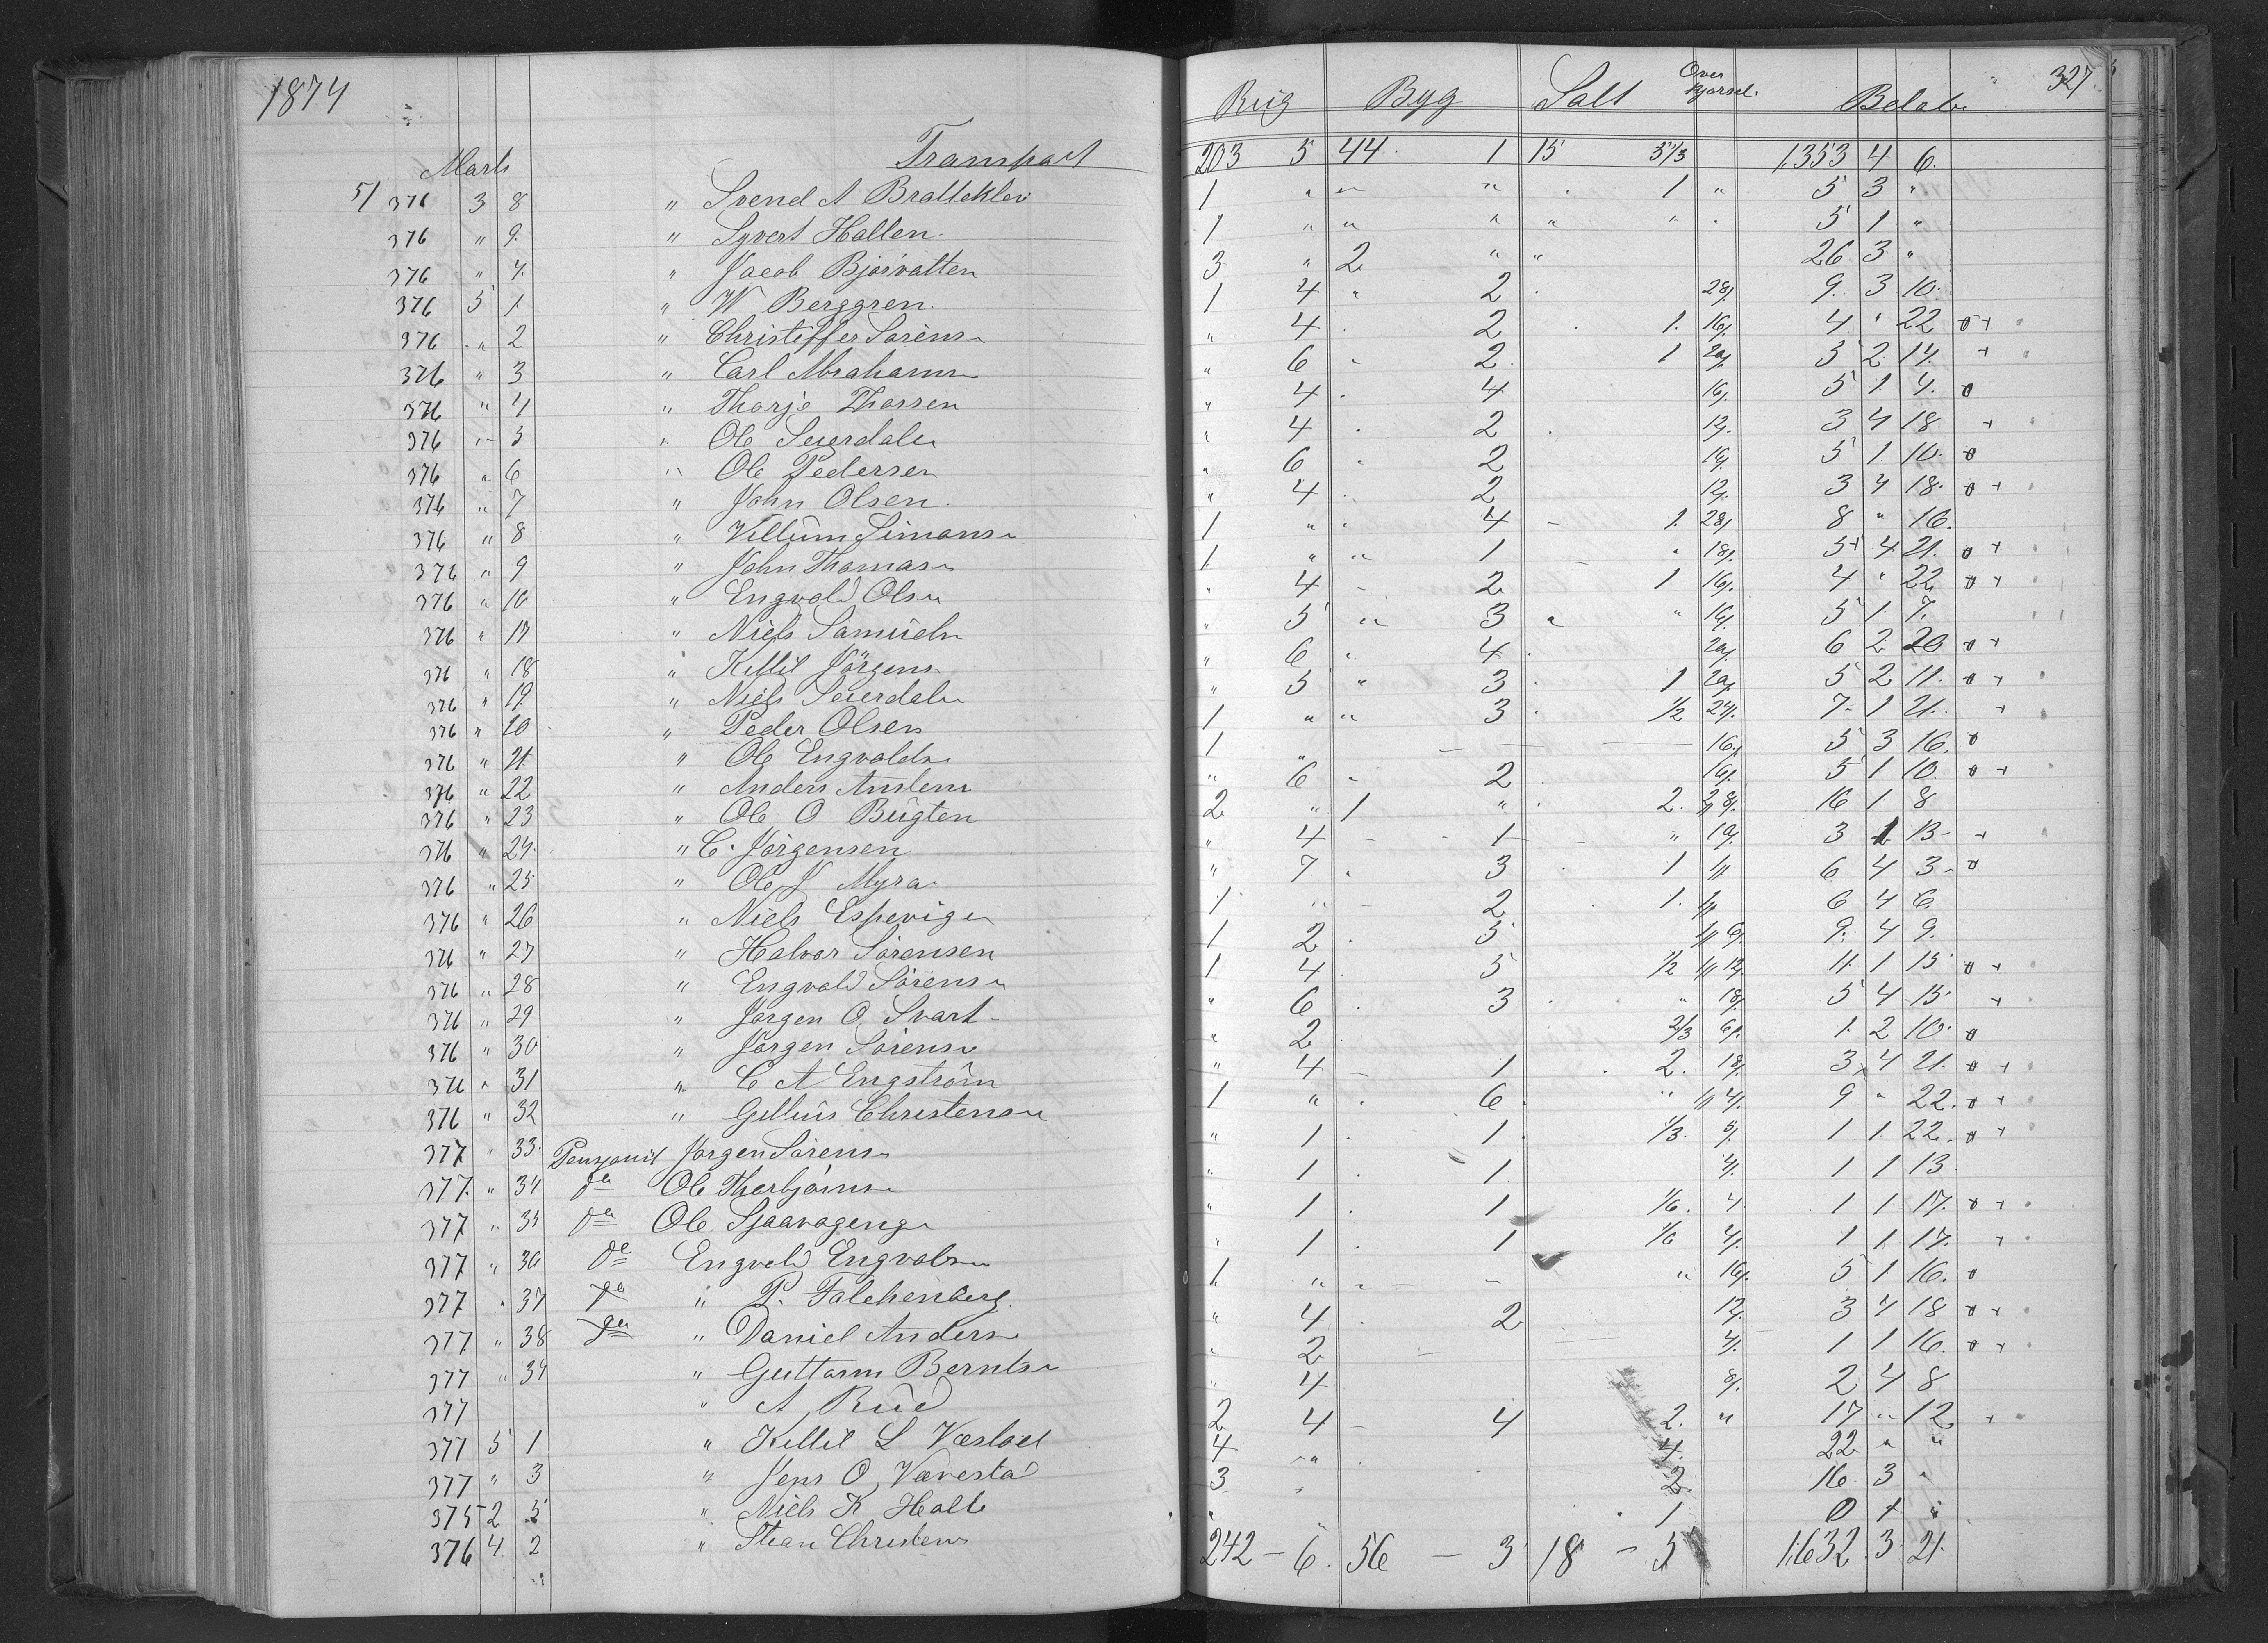 1874
327
Rug Byg Salt Over kjørsel. Beløb
Marts Transport 203 5 44 1 15 5 1/3 1353 4 6.
5/ 376 3 8 " Svend A Bratteklev 1 " " " 1 " 5 3 "
376 " 9. " Syvert Hallen. 1 " " " " " 5 1 "
376 " 4. " Jacob Bjorvatten 3 " 2 " " 26 3 "
376 5 1. " W Berggren. 1 4 " 2 28/. 9. 3 10.
376 " 2 " Christoffer Sørens. " 4 . 2 . 1. 16/. 4 " 22 ø +
376 " 3 " Carl Abrahams. " 6 " 2. 1 20/. 5 2 14. +
376 " 4 " Thorje Thorsen " 4 . 4. 16/. 5 1 4. ø
376 " 5 " Ole Seierdalen " 4 . 2 . 12/. 3 4 18 +
376 " 6 " Ole Pedersen " 6 " 2 16/. 5 1 10. ø
376 " 7 " John Olsen. " 4 . 2 12/. 3 4 18. ø +
376 " 8 " Villum Simons. 1 " " 4 - 1. 28/. 8 " 16.
376 " 9 " John Thomas. 1 " " 1 " 18/. 5 4 21. ø +
376 " 10 " Engvald Olsen " 4 - 2 1 16/. 4 " 22 ø +
376 " 17 " Niels Samuels. " 5 " 3 " " 16/. 5 1 7.
376 " 18 " Kittil Jörgens. " 6 " 4. 20/. 6 2 20 ø +
376 " 19. " Niels Seierdalen " 5 " 3 . 1 20/. 5 2 11. ø +
376 " 20 " Peder Olsen 1 " " 3 . 1/2 24/. 7 1 21. +
376 " 21 " Ole Engvalds. 1 " - - - 16/. 5 3 16. ø
376 " 22 " Anders Anslem. " 6 " 2 . 16/. 5 1 10. ø +
376 " 23 " Ole O Bugten 2 " 1 " . 2. 2/ 8/. 16 1 8
376 " 24. " C. Jörgensen " 4 - 1 - " 10/. 3 1 13 - +
376 " 25 " Ole J Myra. " 7 . 3 1 1/ 6 4 3 - ø
376 " 26 " Niels Espevigen 1 " - 2 1. 1/ 6 4 6.
376 " 27 " Halvor Sørensen 1 2 . 5 1/ 6/. 9. 4 9.
376 " 28 " Engvald Sørens. 1 4 5 1/2 1/ 12/. 11. 1 15 ø +
376 " 29 " Jørgen O. Svart. " 6 . 3 . " 18/. 5 4 15. +
376 " 30 " Jørgen Sørens. " 2 2/3 6/. 1. 2 10. ø
376 " 31 " C A Engström " 4 - 1 . 2. 18/. 3 4 21. ø +
376 " 32 " Gellius Christens. 1 " . 6 " 1/ 4/. 9 " 22. ø +
377 " 33. Pensjonist Jørgen Sørens. " 1 . 1. 1/3. 5/. 1 1 22. ø +
377. " 34 do Ole Thorbjørns. " 1 . 1. 4/. 1 1 13
377 " 35 do Ole Sjaavagengn " 1 . 1 1/6. 4. 1 1 17. ø +
377 " 36 do Engvald Engvalds. " 1 . 1 1/6 4/. 1 1 17. +
377 " 37 do " P. Falchenberg. 1 " " - - " 16/. 5 1 16. ø
377 " 38 do " Daniel Anders. " 4 . 2 12/. 3 4 18 ø +
377 " 34 " Guttorm Bernts. " 2 - 4/. 1 1 16. ø +
377 " A. Rüd " 4 8/. 2 4 8
377 5 1 " Kittil L Væslöet 2 4 - 4 2. " 17 " 12 +
377 " 3 " Jens O, Vævestad 4 " 4. 22 " "
375 2 5 " Niels K Halle 3 " 2. 16 3 "
376 4. 2 " Stian Christens. " " . 1 0 1 "
242 - 6. 56 - 3 18 - 5 1632. 3 21.